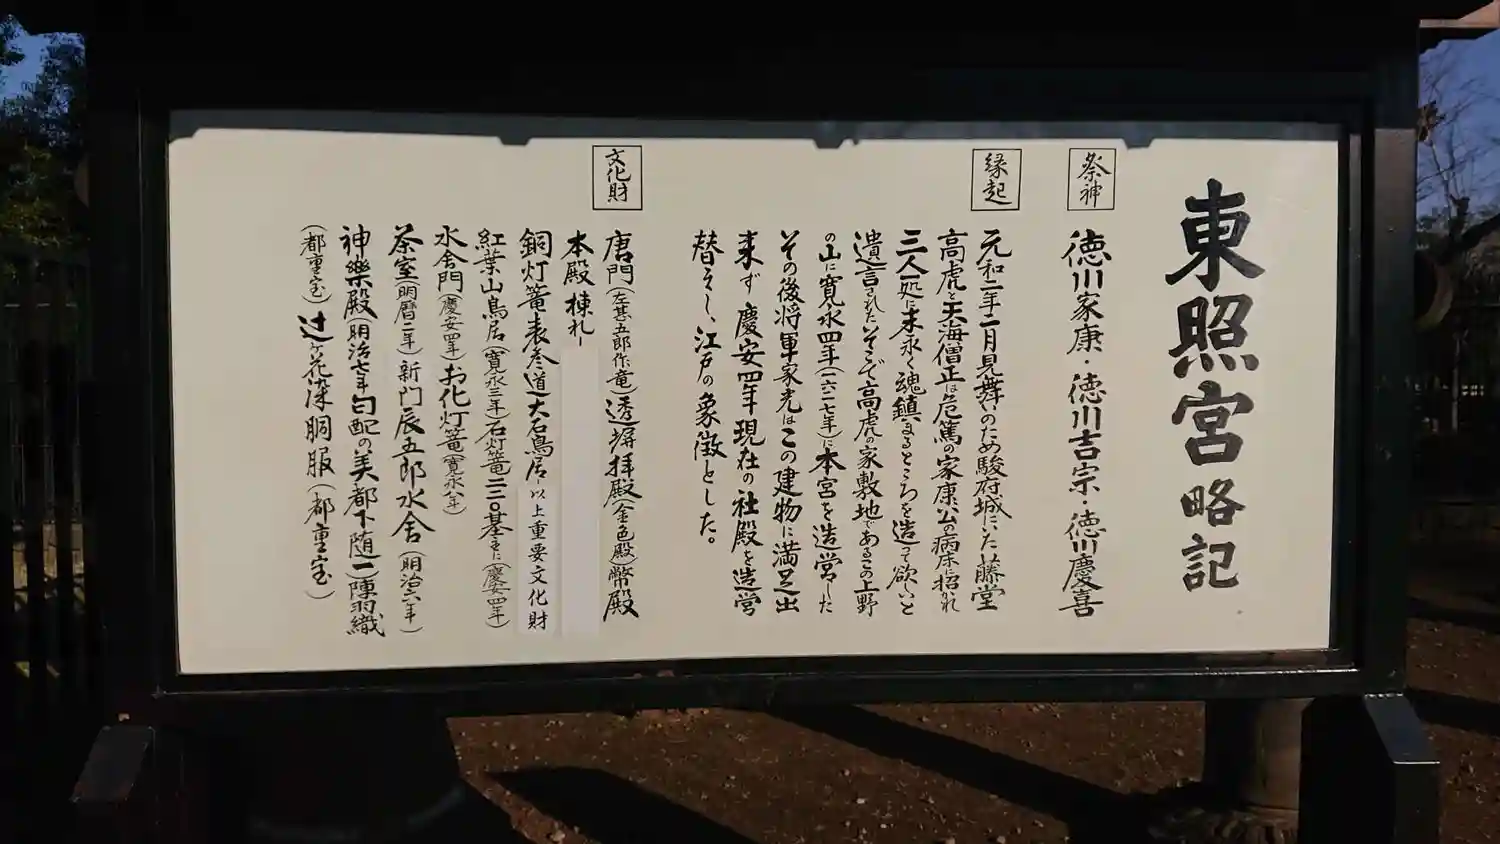 東照宮略記
祭神
徳川家康・徳川吉宗・徳川慶喜
縁起
元和二年二月見舞いのため駿府城にいた藤堂
高虎と天海僧正は危篤の家康公の病床に招かれ
三人一処に末永く魂鎮まるところを造って欲しいと
遺言されたそこで高虎の家敷地であるこの上野
の山に寛永四年(一六二七年)に本宮を造営した
その後将軍家光はこの建物に満足出
来ず慶安四年現在の社殿を造営
替えし、江戸の象徴とした。
文化財
唐門(左甚五郎作竜)透塀拝殿(金色殿)幣殿
本殿棟札
銅灯篭表参道大石鳥居以上重要文化財
紅葉山鳥居(寛永三年)石灯篭二二〇基(慶安四年)
水舎門(慶安四年)お化灯篭(寛永八年)
茶室(明暦二年)新門辰五郎水舎(明治六年)
神楽殿(明治七年)匂配の美都下随一)陳羽織
(都重宝)辻ヶ花染胴服(都重宝)